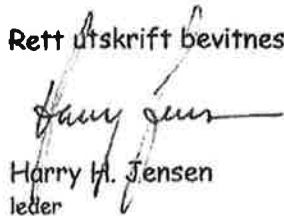 Rett utskrift bevitnes
Harry Jens
Harry H. Jensen
leder